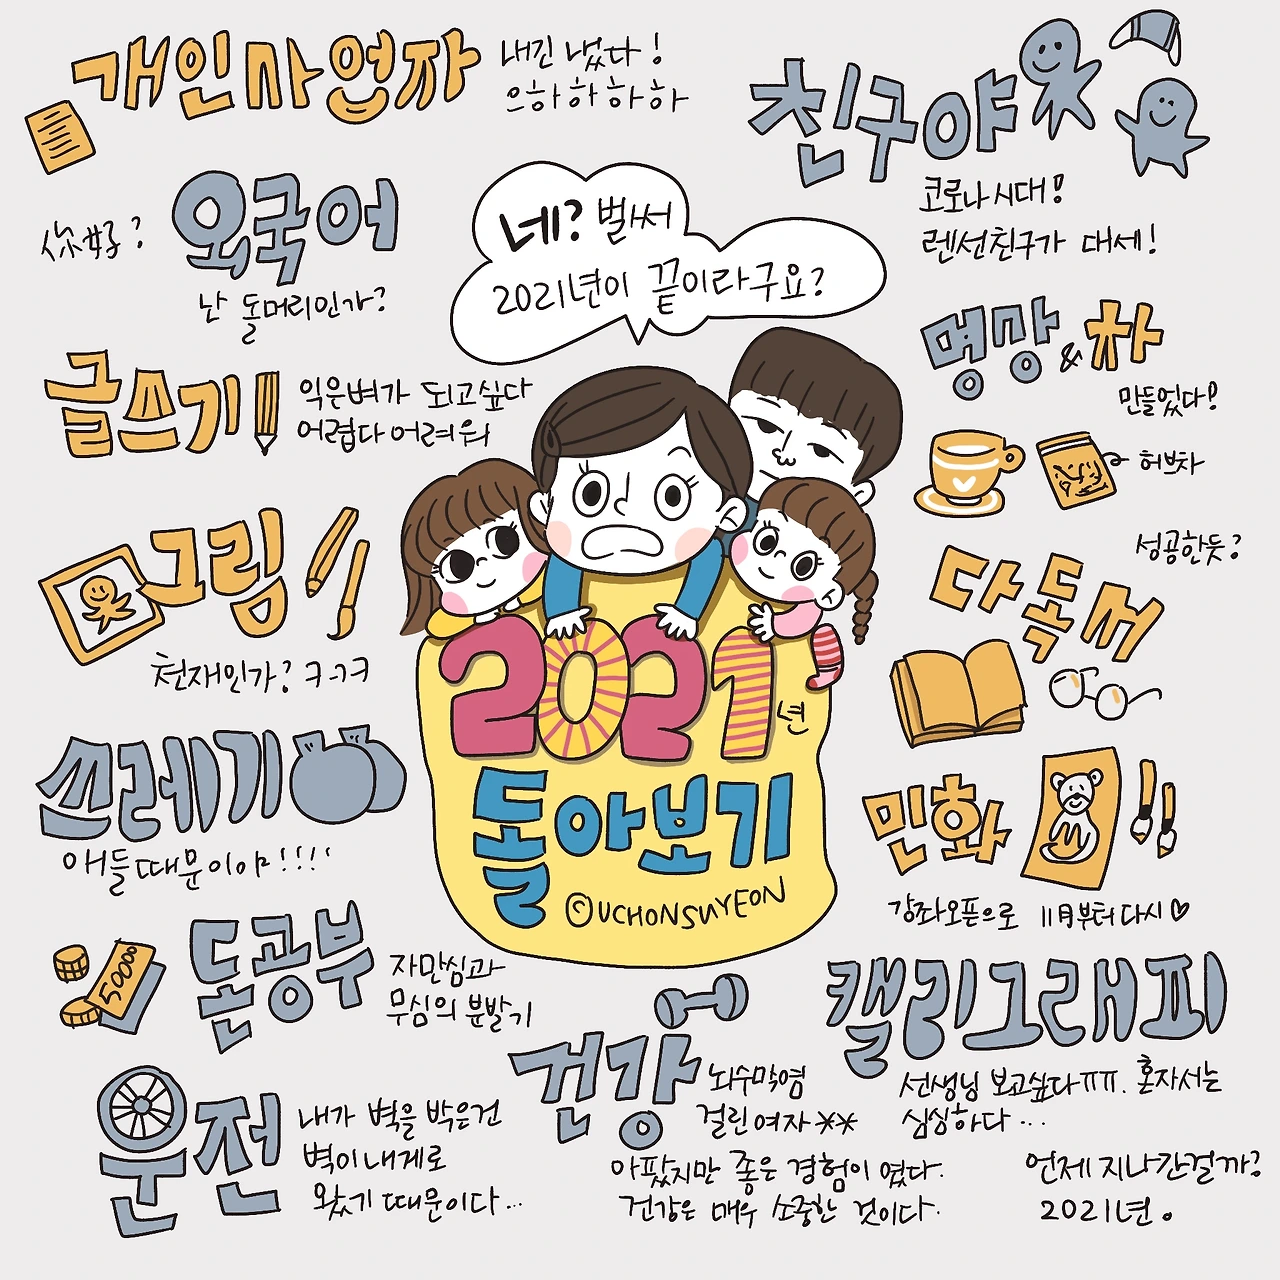 개인사업자
내긴 냈다!
으하하하하
친구야
코로나시대!
렌선친구가 대세!
외국어
你好?
난 돌머리인가?
네? 벌써
2021년이 끝이라구요?
명상&차
만들었다!
허브차
성공한듯?
글쓰기
익은벼가 되고싶다
어렵다 어려워
그림
천재인가? ㅋㅋㅋ
다독서
2021년
돌아보기
©UCHONSUYEON
쓰레기
애들때문이야!!!!
민화
강좌오픈으로 11月부터 다시♡
돈공부
50000
자만심과
무심의 분발기
캘리그래피
선생님 보고싶다ㅠㅠ. 혼자서는
심심하다...
건강
뇌수막염
걸린여자**
아팠지만 좋은 경험이 였다.
건강은 매우 소중한 것이다.
운전
내가 벽을 박은건
벽이내게로
왔기 때문이다...
언제 지나간걸까?
2021년.